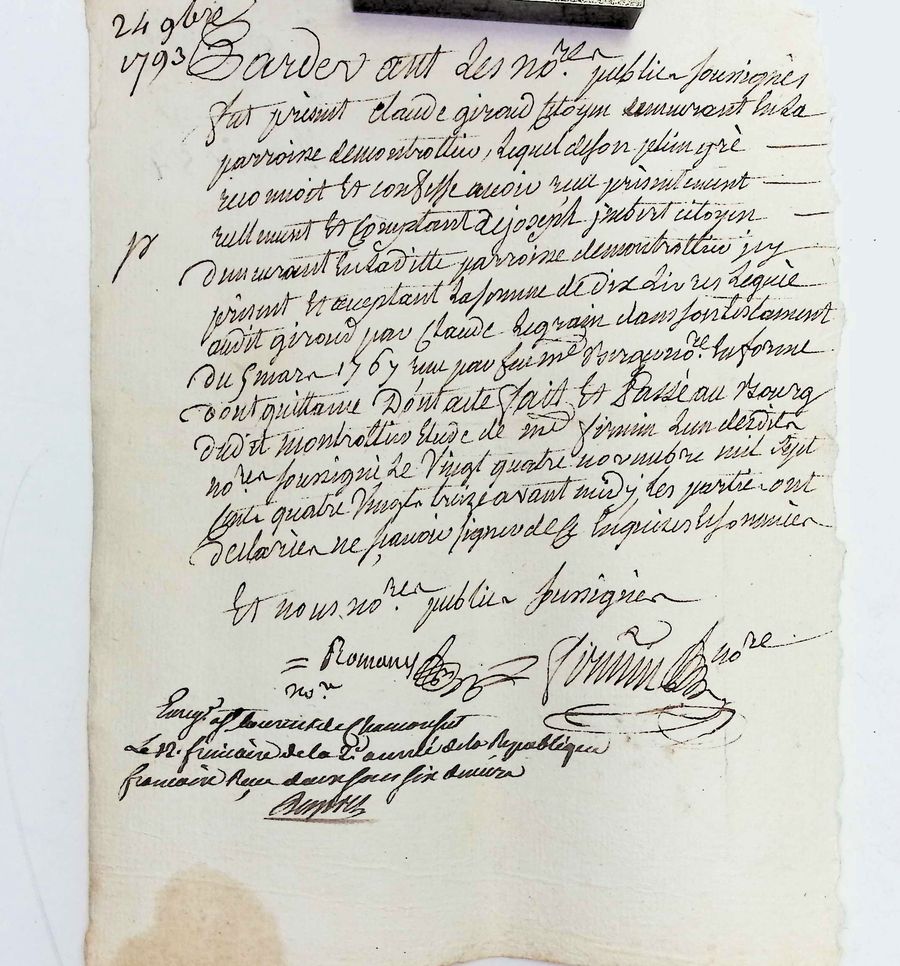 24 9bre
1793
Pardevant Les no.res publics soussignés
fut présent Claude giraud Citoyen demeurant En La
parroisse de montrollier, Lequel de son plein gré
reconnoit Et confesse avoir reçu présentement
reellement Et Comptant de joseph citoyen
demeurant En La ditte parroisse de montrollier icy
présent Et acceptant La somme de dix Livres Leguée
audit giraud par Claude Legrain dans son testament
du 5 mars 1767 reçu par feu me no.re En forme
dont quittance D'ont acte fait Et Passé au Bourg
dudit montrollier Etude de me firmin L'un desdits
no.res soussigné Le Vingt quatre novembre mil sept
Cents quatre Vingts treize avant midy, les parties ont
declarées ne sçavoir signer de Ce Enquises Et sommées
Et nous no.res publics soussignés
= Romany
no.re
firmin no.re
Enreg.
Le 12. frimaire de la 2e année de la Republique
francaise Reçu sous six deniers